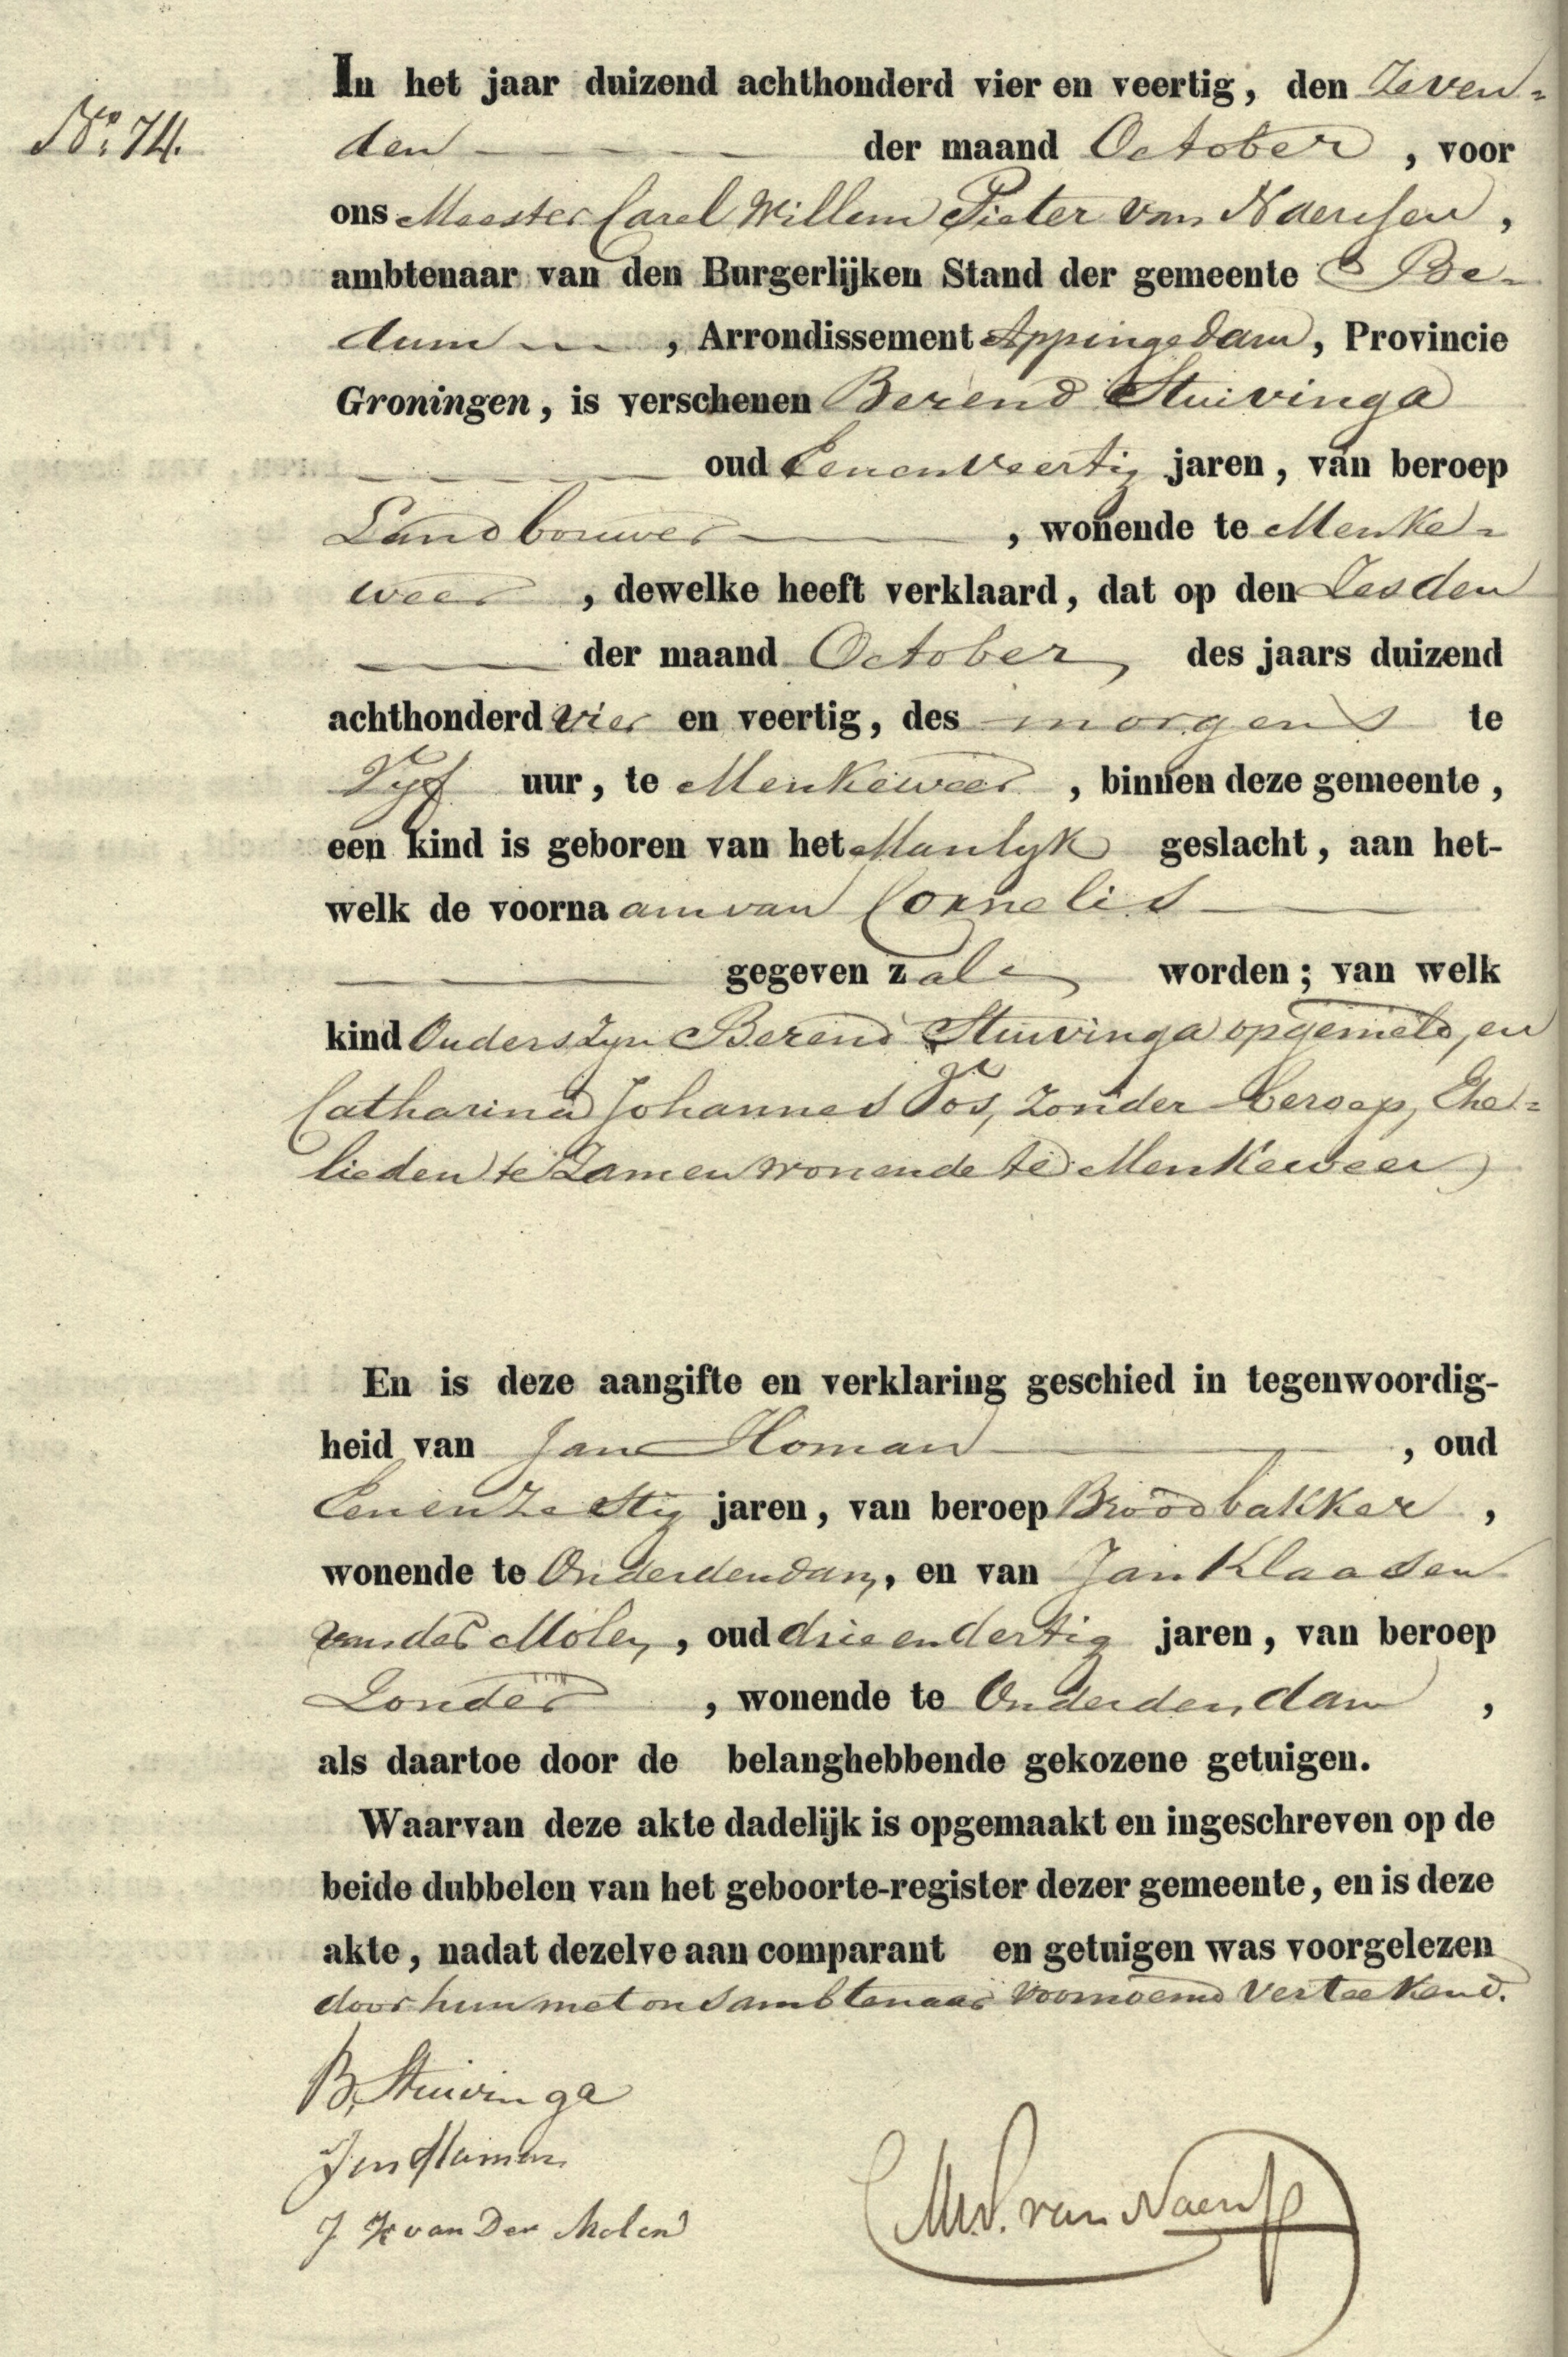 No. 74.
In het jaar duizend achthonderd vier en veertig, den Zeven=
den der maand October, voor
ons Meester Carel Willem Pieter van Naerssen,
ambtenaar van den Burgerlijken Stand der gemeente Be=
dum, Arrondissement Appingedam, Provincie
Groningen, is verschenen Berend Stuivinga
oud Eenenveertig jaren, van beroep
Landbouwer, wonende te Menke=
weer, dewelke heeft verklaard, dat op den Zesden
der maand October, des jaars duizend
achthonderd vier en veertig, des morgens te
Vyf uur, te Menkeweer, binnen deze gemeente,
een kind is geboren van het Manlyk geslacht, aan het-
welk de voornaam van Cornelis
gegeven zal worden; van welk
kind Ouders zyn Berend Stuivinga opgemeld, en
Catharina Johannes Vos, zonder beroep, Ehe=
lieden te zamen wonende te Menkeweer
En is deze aangifte en verklaring geschied in tegenwoordig-
heid van Jan Homan, oud
Eenenzestig jaren, van beroep Broodbakker,
wonende te Onderdendam, en van Jan Klaasen
van der Molen, oud drieendertig jaren, van beroep
Zonder, wonende te Onderdendam,
als daartoe door de belanghebbende gekozene getuigen.
Waarvan deze akte dadelijk is opgemaakt en ingeschreven op de
beide dubbelen van het geboorte-register dezer gemeente, en is deze
akte, nadat dezelve aan comparant en getuigen was voorgelezen
door hun met ons ambtenaar voornoemd verteekend.
B, Stuivinga
Jan Homan
J K van Der Molen
CWP. van Naerssen